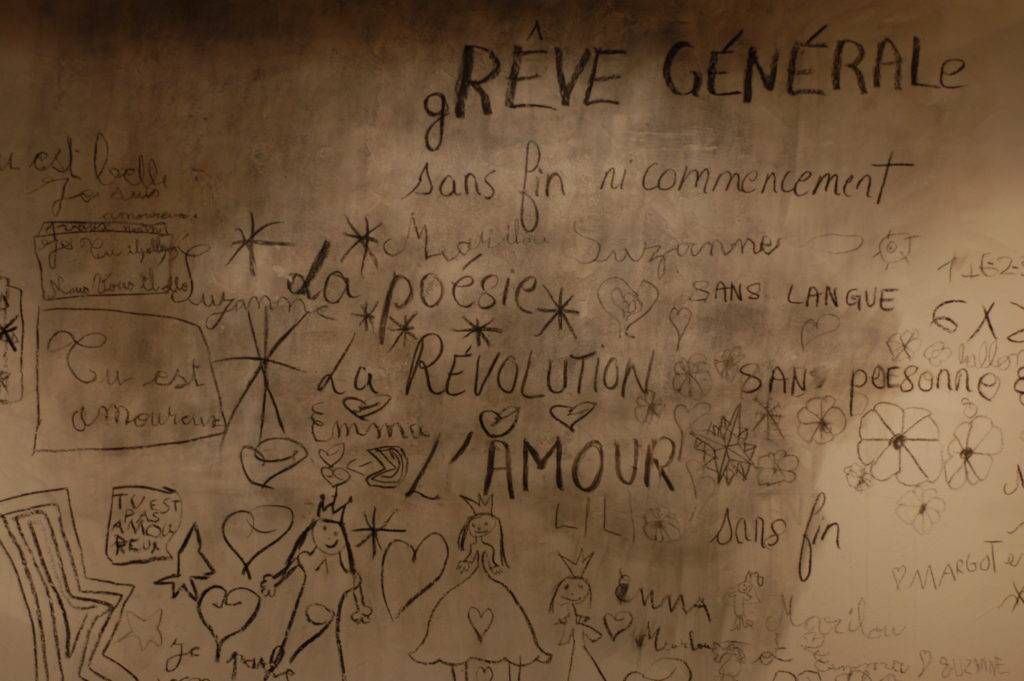 gRÊVE GÉNÉRALe
sans fin ni commencement
u est belle
Je suis
amoureux.
Marilou Suzanne
La poésie SANS LANGUE
Suzanne
6 X
Tu est
amoureux
La RÉVOLUTION SANS personne
Emma
L'AMOUR
sans fin
TU EST
PAS
AMOU
REUX
LILI
MARGOT e
Enna
Marilou
Marilou
et Emma SUZANNE
je